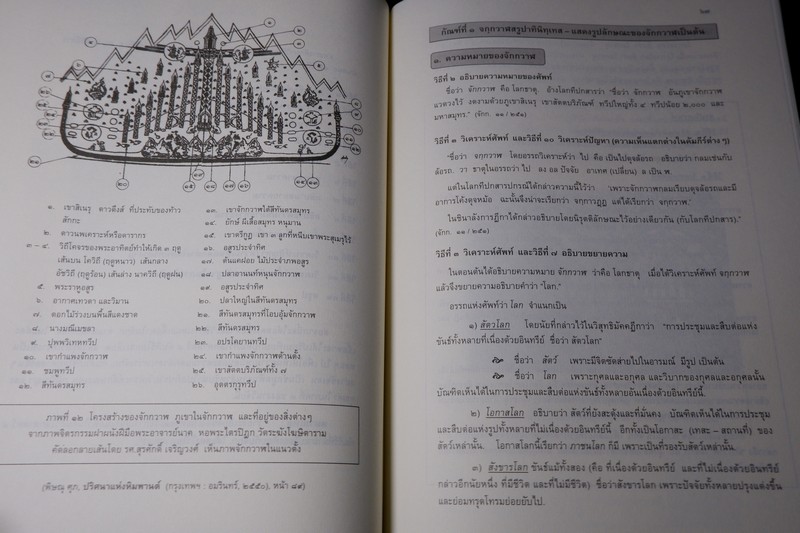 ๑. เขาสิเนรุ ดาวดึงส์ ที่ประทับของท้าว
สักกะ
๒. ดาวนพเคราะห์หรือดารากร
๓ - ๔. วิถีโคจรของพระอาทิตย์ทำให้เกิด ๓ ฤดู
เส้นบน โควิถี (ฤดูหนาว) เส้นกลาง
อัชวิถี (ฤดูร้อน) เส้นล่าง นาควิถี (ฤดูฝน)
๕. พระราหูอสูร
๖. อากาศเทวดา และวิมาน
๗. ดอกไม้ร่วงบนพื้นสีแดงชาด
๘. นางมณีเมขลา
๙. ปุพพวิเทหทวีป
๑๐. เขากำแพงจักรกาพ
๑๑. ชมพูทวีป
๑๒. สีทันดรสมุทร
๑๓. เขาจักกวาฬใต้สีทันดรสมุทร
๑๔. ยักษ์ ผีเสื้อสมุทร หนุมาน
๑๕. เขาตรีกูฏ เขา ๓ ลูกที่หนีบเขาพระสุเมรุไว้
๑๖. อสูรประจำทิศ
๑๗. ต้นแคฝอย ไม้ประจำภพอสูร
๑๘. ปลาอานนท์หนุนจักกวาฬ
๑๙. อสูรประจำทิศ
๒๐. ปลาใหญ่ในสีทันดรสมุทร
๒๑. สีทันดรสมุทรที่โอบอุ้มจักกวาฬ
๒๒. สีทันดรสมุทร
๒๓. อปรโคยานทวีป
๒๔. เขากำแพงจักกวาฬด้านตั้ง
๒๕. เขาสัตตบริภัณฑ์ทั้ง ๗
๒๖. อุตตรกุรุทวีป
ภาพที่ ๑๒ โครงสร้างของจักกวาฬ ภูเขาในจักกวาฬ และที่อยู่ของสิ่งต่างๆ
จากภาพจิตรกรรมฝาผนังฝีมือพระอาจารย์นาค หอพระไตรปิฎก วัดระฆังโฆษิตาราม
คัดลอกลายเส้นโดย รศ.สุรศักดิ์ เจริญวงศ์ เห็นภาพจักกวาฬในแนวตั้ง
(พิษณุ ศุภ, ปริศนาแห่งหิมพานต์ (กรุงเทพฯ : อมรินทร์, ๒๕๕๐), หน้า ๘๙)
กัณฑ์ที่ ๑ จกฺกวาฬสรูปาทินิทฺเทส – แสดงรูปลักษณะของจักกวาฬเป็นต้น
๑. ความหมายของจักกวาฬ
วิธีที่ ๒ อธิบายความหมายของศัพท์
ชื่อว่า จักกวาฬ คือ โลกธาตุ. อ้างโลกทีปกสารว่า "ชื่อว่า จักกวาฬ อันภูเขาจักกวาฬ
แวดวงไว้ งดงามด้วยภูเขาสิเนรุ เขาสัตตบริภัณฑ์ ทวีปใหญ่ทั้ง ๔ ทวีปน้อย ๒,๐๐๐ และ
มหาสมุทร." (จักก. ๑๑ / ๒๕๑)
วิธีที่ ๓ วิเคราะห์ศัพท์ และวิธีที่ ๑๐ วิเคราะห์ปัญหา (ความเห็นแตกต่างในคัมภีร์ต่าง ๆ)
"ชื่อว่า จกฺกวาฬ โดยอรรถวิเคราะห์ว่า ไป คือ เป็นไปดุจล้อรถ อธิบายว่า กลมเช่นกับ
ล้อรถ. วา ธาตุในอรรถว่า ไป ลง อล ปัจจัย อาเทศ (เปลี่ยน) ล เป็น ฬ.
แต่ในโลกทีปกสารปกรณ์ได้กล่าวความนี้ไว้ว่า 'เพราะจักกวาฬกลมเรียบดุจล้อรถและมี
อาการโค้งดุจหม้อ ฉะนั้นจึงน่าจะเรียก จกฺกาวฏฺฏ แต่ได้เรียกว่า จกฺกวาฬ.'
ในชินาลังการฎีกาได้กล่าวอธิบายโดยนิรุตติลักษณะไว้อย่างเดียวกัน (กับโลกทีปกสาร)."
(จักก. ๑๑ / ๒๕๑)
วิธีที่ ๓ วิเคราะห์ศัพท์ และวิธีที่ ๗ อธิบายขยายความ
ในตอนต้นได้อธิบายความหมาย จักกวาฬ ว่าคือ โลกธาตุ เมื่อได้วิเคราะห์ศัพท์ จกฺกวาฬ
แล้วจึงขยายความอธิบายคำว่า "โลก."
อรรถแห่งศัพท์ว่า โลก จำแนกเป็น
๑) สัตวโลก โดยนัยที่กล่าวไว้ในวิสุทธิมัคคฎีกาว่า "การประชุมและสืบต่อแห่ง
ขันธ์ทั้งหลายที่เนื่องด้วยอินทรีย์ ชื่อว่า สัตวโลก"
ชื่อว่า สัตว์ เพราะมีจิตซัดส่ายไปในอารมณ์ มีรูป เป็นต้น
ชื่อว่า โลก เพราะกุศลและอกุศล และวิบากของกุศลและอกุศลนั้น
บัณฑิตเห็นได้ในการประชุมและสืบต่อแห่งขันธ์ทั้งหลายอันเนื่องด้วยอินทรีย์นี้.
๒) โอกาสโลก อธิบายว่า สัตว์ที่ยังสะดุ้งและที่มั่นคง บัณฑิตเห็นได้ในการประชุม
และสืบต่อแห่งรูปทั้งหลายที่ไม่เนื่องด้วยอินทรีย์นี้ อีกทั้งเป็นโอกาสะ (เทสะ – สถานที่) ของ
สัตว์เหล่านั้น. โอกาสโลกนี้เรียกว่า ภาชนโลก ก็มี เพราะเป็นที่รองรับสัตว์เหล่านั้น.
๓) สังขารโลก ขันธ์แม้ทั้งสอง (คือ ที่เนื่องด้วยอินทรีย์ และที่ไม่เนื่องด้วยอินทรีย์
กล่าวอีกนัยหนึ่ง ที่มีชีวิต และที่ไม่มีชีวิต) ชื่อว่าสังขารโลก เพราะปัจจัยทั้งหลายปรุงแต่งขึ้น
และย่อมทรุดโทรมย่อยยับไป.